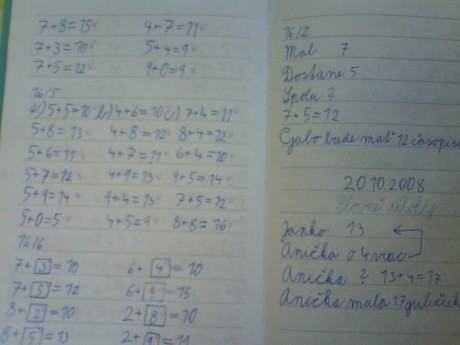 7+8=15
4+7=11
7+3=10
5+4=9
7+5=12
9+0=9
16/5
a) 5+5=10 b) 4+6=10 c) 7+4=11
5+8=13 4+8=12 8+4=12
5+6=11 4+7=11 6+4=10
5+7=12 4+9=13 9+5=14
5+9=14 9+4=13 7+5=12
5+0=5 4+5=9 8+8=16
16/6
7+3=10 6+4=10
7+5=12 6+9=15
8+2=10 2+8=10
8+5=13 2+9=11
16/2
Mal 7
Dostane 5
Spolu ?
7+5=12
Gabo bude mať 12 časopisov
20.10.2008
Janko 13
Anička o 4 viac
Anička ? 13+4=17
Anička mala 17 guličiek